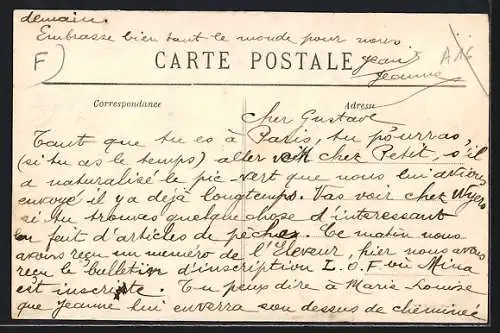 demain.
Embrasse bien tout le monde pour nous
Jean
Jeanne
F
A16
CARTE POSTALE
Correspondance
Adresse
Cher Gustave
Tant que tu es à Paris, tu pourras,
(si tu as le temps) aller voir chez Petit, s'il
a naturalisé le pic-vert que nous lui avions
envoyé il y a déjà longtemps. Vas voir chez Wyers
si tu trouves quelque chose d'interessant
en fait d'articles de pêche. Ce matin nous
avons reçu un numéro de l'Eleveur, hier nous avons
reçu le bulletin d'inscription L.O.F où Mina
est inscrite. Tu peux dire à Marie Louise
que Jeanne lui enverra son dessus de cheminée